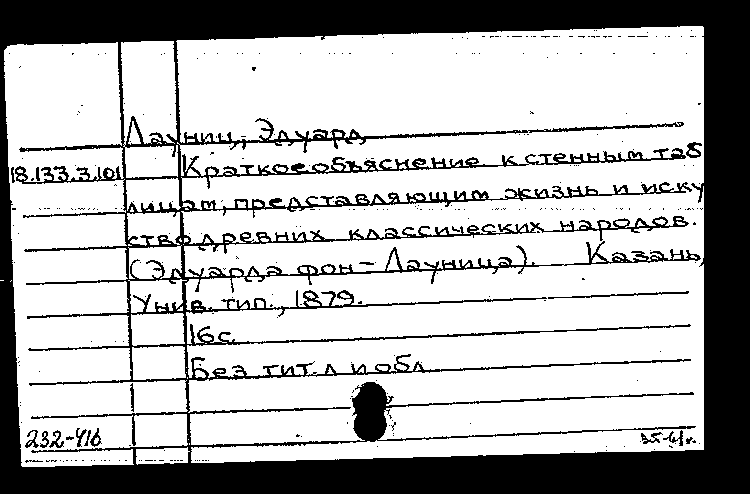 Лауниц, Эдуард
18.133.3.101 Краткое объяснение к стенным таб
лицам, представляющим жизнь и иску
ство древних классических народов.
(Эдуарда фон-Лауница). Казань,
Унив. тип., 1879.
16с.
Без тит. л и обл
232-416